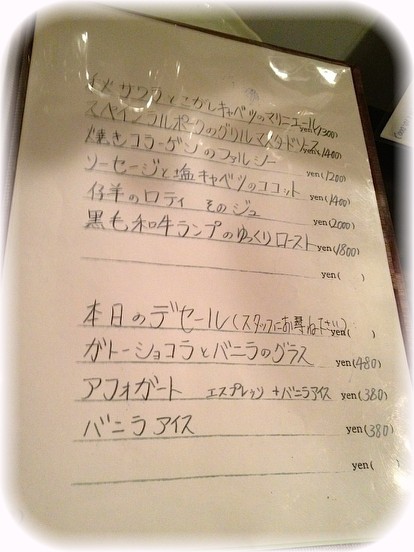 サワラとこがしキャベツのマリニエール yen(1300)
スペイン ラルポークのグリル マスタードソース yen(1400)
焼きコラーゲンのファルシー yen(1200)
ソーセージと塩キャベツのココット yen(1400)
仔羊のロティ そのジュ yen(2000)
黒毛和牛ランプのゆっくりロースト yen(1800)
yen( )
本日のデセール(スタッフにお尋ね下さい) yen( )
ガトーショコラとバニラのグラス yen(480)
アフォガート エスプレッソ+バニラアイス yen(380)
バニラアイス yen(380)
yen( )